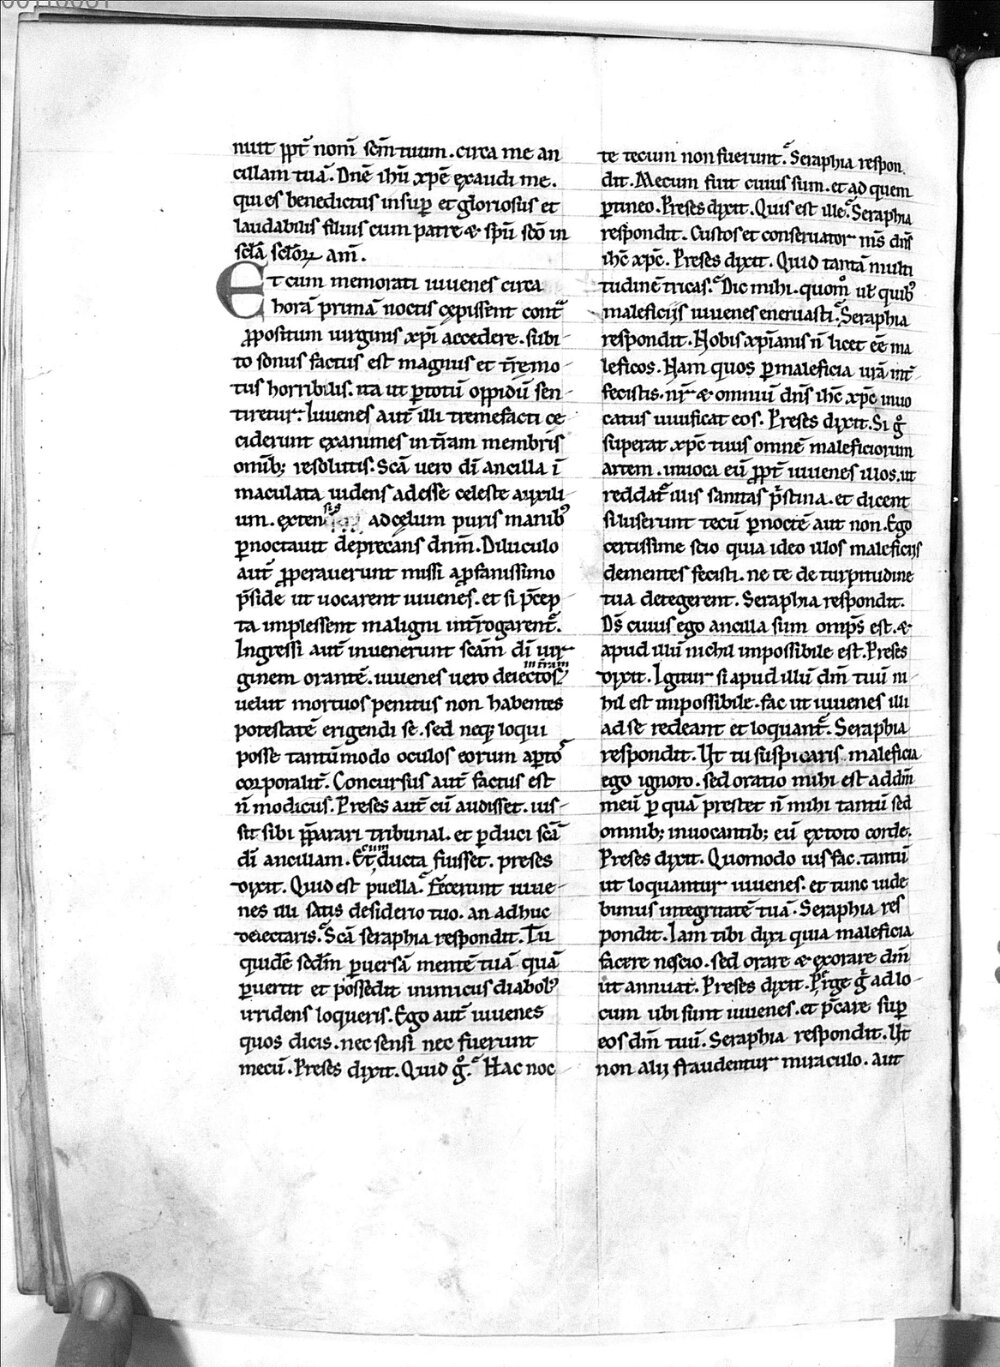 nuit ꝓpt̄ nom̄ sc̄m tuum. circa me an
cillam tuā. Dn̄e ihū xp̄e exaudi me.
qui es benedictus insuꝑ et gloriosus et
laudabilis filius cum patre & spū sc̄o in
scl̄a scl̄oꝝ am̄.
Et cum memorati iuuenes circa
horā primā noctis cepissent cont̄
ꝓpositum uirginis xp̄i accedere. subi
to sonus factus est magnus et t̄remo
tus horribilis. ita ut ꝑ totū oppidū sen
tiretur. Iuuenes aut̄ illi tremefacti ce
ciderunt exanimes in t̄ram membris
omib; resolutis. Sc̄a uero dī ancilla ī
maculata uidens adesse celeste auxili
um. exten ad cęlum puris manibꝰ
ꝑnoctauit deprecans dn̄m. Diluculo
aut̄ ꝓperauerunt missi a ꝓfanissimo
p̄side ut uocarent iuuenes. et si p̄cep
ta implessent maligni int̄rogarent̄.
Ingressi aut̄ inuenerunt sc̄am dī uir
ginem orantē. iuuenes uero deiectos in t̄ram
uelut mortuos penitus non habentes
potestatē erigendi se. sed neqꝫ loqui
posse tantūmodo oculos eorum aꝑtoꝰ
corporalit̄. Concursus aut̄ factus est
n̄ modicus. Preses aut̄ cū audisset. ius
sit sibi p̄parari tribunal. et ꝑduci sc̄ā
dī ancillam. Et cum ducta fuisset. preses
dixit. Quid est puella? Fecerunt iuue
nes illi satis desiderio tuo. an adhuc
delectaris? Sc̄a seraphia respondit. Tu
quidē scdm̄ ꝑuersā mentē tuā quā
ꝑuertit et possedit inimicus diabolꝰ
irridens loqueris. Ego aut̄ iuuenes
quos dicis. nec sensi nec fuerunt
mecū. Preses dixit. Quid gͦ? Hac noc
te tecum non fuerunt? Seraphia respon
dit. Mecum fuit cuius sum. et ad quem
ꝑtineo. Preses dixit. Quis est ille? Seraphia
respondit. Custos et conseruator m̄s dn̄s
ihc̄ xp̄c. Preses dixit. Quid tantā multi
tudinē tricas? Dic mihi. quom̊ ut̄ quibꝰ
maleficiis iuuenes eneruasti? Seraphia
respondit. Nobis xp̄ianis n̄ licet eē ma
leficos. Nam quos ꝑ maleficia ur̄a int̄
fecistis. nr̄ & omniū dn̄s ihc̄ xp̄c inuo
catus uiuificat eos. Preses dixit. Si gͦ
superat xp̄c tuus omnē maleficiorum
artem. inuoca eū ꝓpt̄ iuuenes illos. ut
reddat̄ illis sanitas p̄stina. et dicent
si luserunt tecū ꝑ noctē aut non. Ego
certissime scio quia ideo illos maleficiis
dementes fecisti. ne te de turpitudine
tua detegerent. Seraphia respondit.
Ds̄ cuius ego ancilla sum omp̄s est. &
apud illū nichil impossibile est. Preses
dixit. Igitur si apud illū dm̄ tuū ni
hil est impossibile. fac ut iuuenes illi
ad se redeant et loquant̄. Seraphia
respondit. Ut tu suspicaris maleficia
ego ignoro. sed oratio mihi est ad dm̄
meū ꝑ quā prestet n̄ mihi tantū sed
omnib; inuocantib; eū ex toto corde.
Preses dixit. Quomodo uis fac. tantū
ut loquantur iuuenes. et tunc uide
bimus integritatē tuā. Seraphia res
pondit. Iam tibi dixi quia maleficia
facere nescio. sed orare & exorare dm̄
ut annuat. Preses dixit. P̄ge gͦ ad lo
cum ubi sunt iuuenes. et p̄care suꝑ
eos dm̄ tuū. Seraphia respondit. Ut
non alii fraudentur miraculo. aut